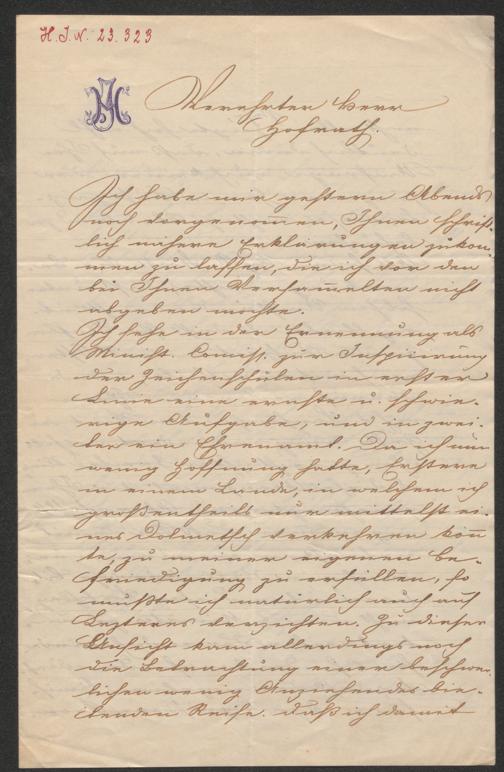 H. I. N. 23.323
Verehrter Herr
Hofrath.
Ich habe mir gestern Abends
noch vorgenommen, Ihnen schrift-
lich nähere Erklärungen zukom-
men zu lassen, die ich vor den
bei Ihnen Versammelten nicht
abgeben mochte.
Ich sehe in der Ernennung als
Minist. Comiss. zur Inspicirung
der Zeichenschulen in erster
Linie eine ernste u. schwie-
rige Aufgabe, und in zwei-
ter ein Ehrenamt. Da ich nun
wenig Hoffnung hatte, Erstere
in einem Lande, in welchem ich
großentheils nur mittelst ei-
nes Dolmetsch verkehren konn
te, zu meiner eigenen Be-
friedigung zu erfüllen, so
mußte ich natürlich auch auf
Letzteres verzichten. Zu dieser
Ansicht kam allerdings noch
die Betrachtung einer beschwer-
lichen wenig Anziehendes bie-
tenden Reise. Daß ich damit